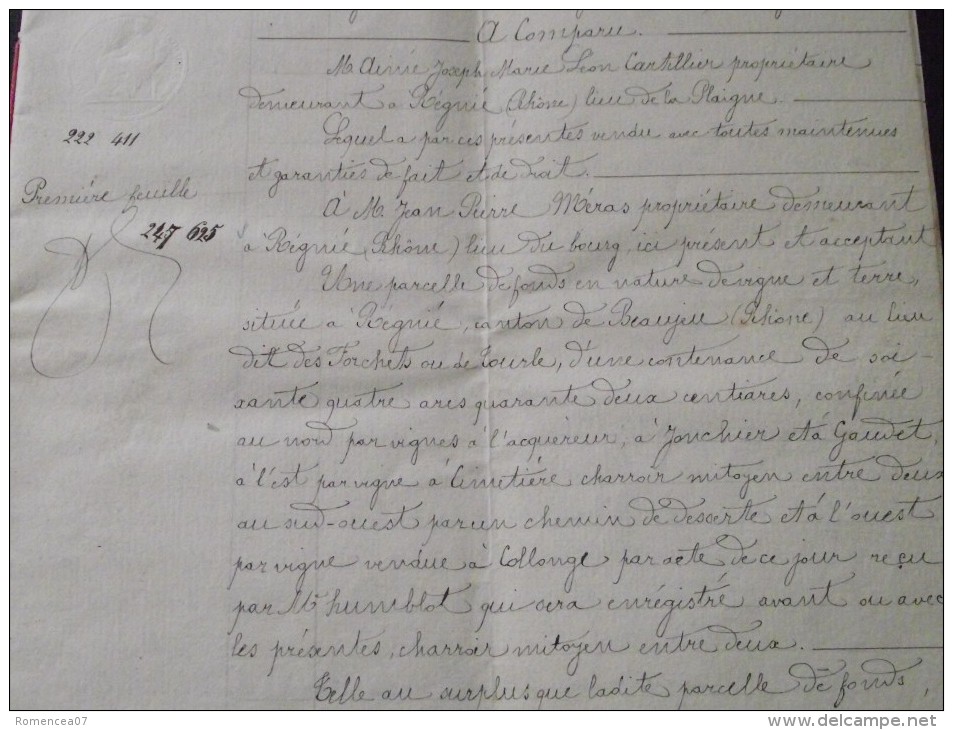 A Comparu.
M. Aimé Joseph Marie Léon Cartillier propriétaire
demeurant à Régnié (Rhône) lieu de la Plaigne.
222 411
Lequel a par ces présentes vendu avec toutes maintenues
et garanties de fait et de droit.
Première feuille
247 625
À M. Jean Pierre Méras propriétaire demeurant
à Régnié (Rhône) lieu du bourg, ici présent et acceptant
Une parcelle de fonds en nature de vigne et terre,
située à Régnié, canton de Beaujeu (Rhône) au lieu
dit des Forchets ou de Tourle, d'une contenance de soi-
xante quatre ares quarante deux centiares, confinée
au nord par vignes à l'acquéreur, à Jonchier et à Gaudet,
à l'est par vigne à Cimetière charroir mitoyen entre deux
au sud-ouest par un chemin de desserte et à l'ouest
par vigne vendue à Collonge par acte de ce jour reçu
par Me humblot qui sera enrégistré avant ou avec
les présentes, charroir mitoyen entre deux.
Telle au surplus que ladite parcelle de fonds,
Romencea07
www.delcampe.net